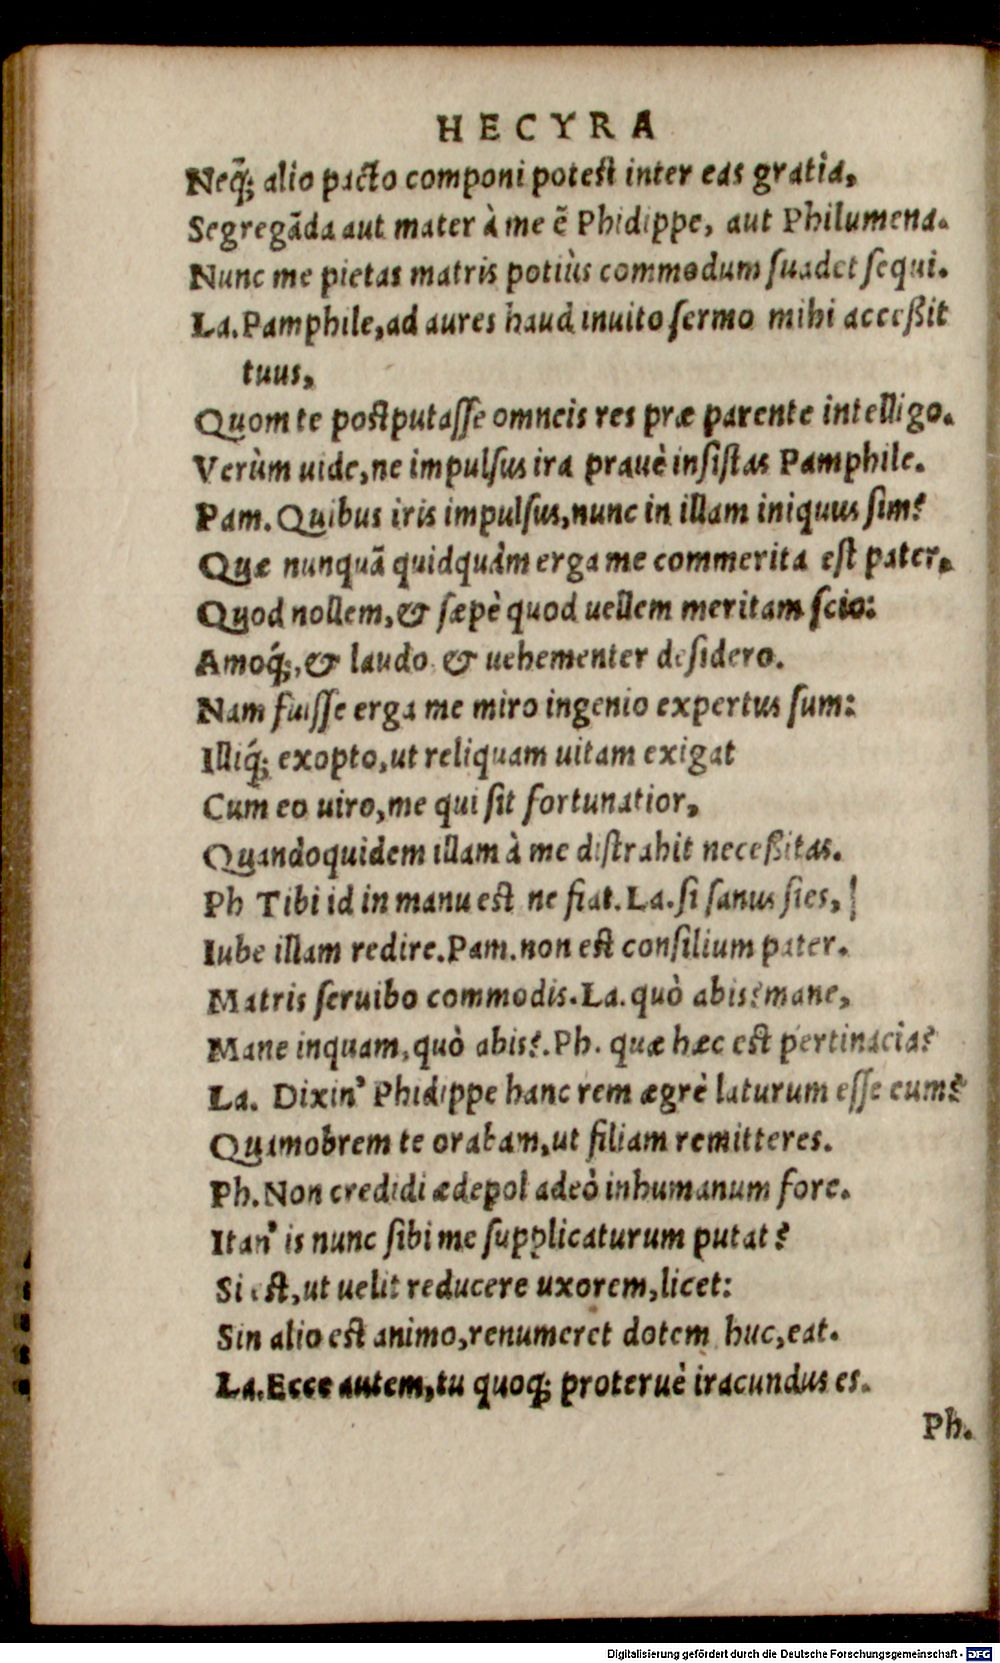 HECYRA
Neq́; alio pacto componi potest inter eas gratia,
Segregãda aut mater à me ẽ Phidippe, aut Philumena.
Nunc me pietas matris potiùs commodum ſuadet ſequi.
La.Pamphile,ad aures haud inuito ſermo mihi acceßit
tuus,
Quom te poſtputaſſe omneis res præ parente intelligo.
Verùm uide,ne impulſus ira prauè inſiſtas Pamphile.
Pam.Quibus iris impulſus,nunc in illam iniquus ſim?
Quæ nunquã quidquàm erga me commerita eſt pater,
Quod nollem,& ſæpè quod uellem meritam ſcio:
Amoq́;,& laudo & uehementer deſidero.
Nam fuiſſe erga me miro ingenio expertus ſum:
Illiq́; exopto,ut reliquam uitam exigat
Cum eo uiro,me qui ſit fortunatior,
Quandoquidem illam à me diſtrahit neceßitas.
Ph Tibi id in manu eſt ne fiat.La.ſi ſanus ſies,
Iube illam redire.Pam.non eſt conſilium pater.
Matris ſeruibo commodis.La.quò abis?mane,
Mane inquam,quò abis?.Ph. quæ hæc eſt pertinacia?
La. Dixin' Phidippe hanc rem ægrè laturum eſſe eum?
Quamobrem te orabam,ut filiam remitteres.
Ph.Non credidi ædepol adeò inhumanum fore.
Itan' is nunc ſibi me ſupplicaturum putat?
Si eſt,ut uelit reducere uxorem,licet:
Sin alio eſt animo,renumeret dotem huc,eat.
La.Ecce autem,tu quoq; proteruè iracundus es.
Ph.
Digitalisierung gefördert durch die Deutsche Forschungsgemeinschaft - DFG